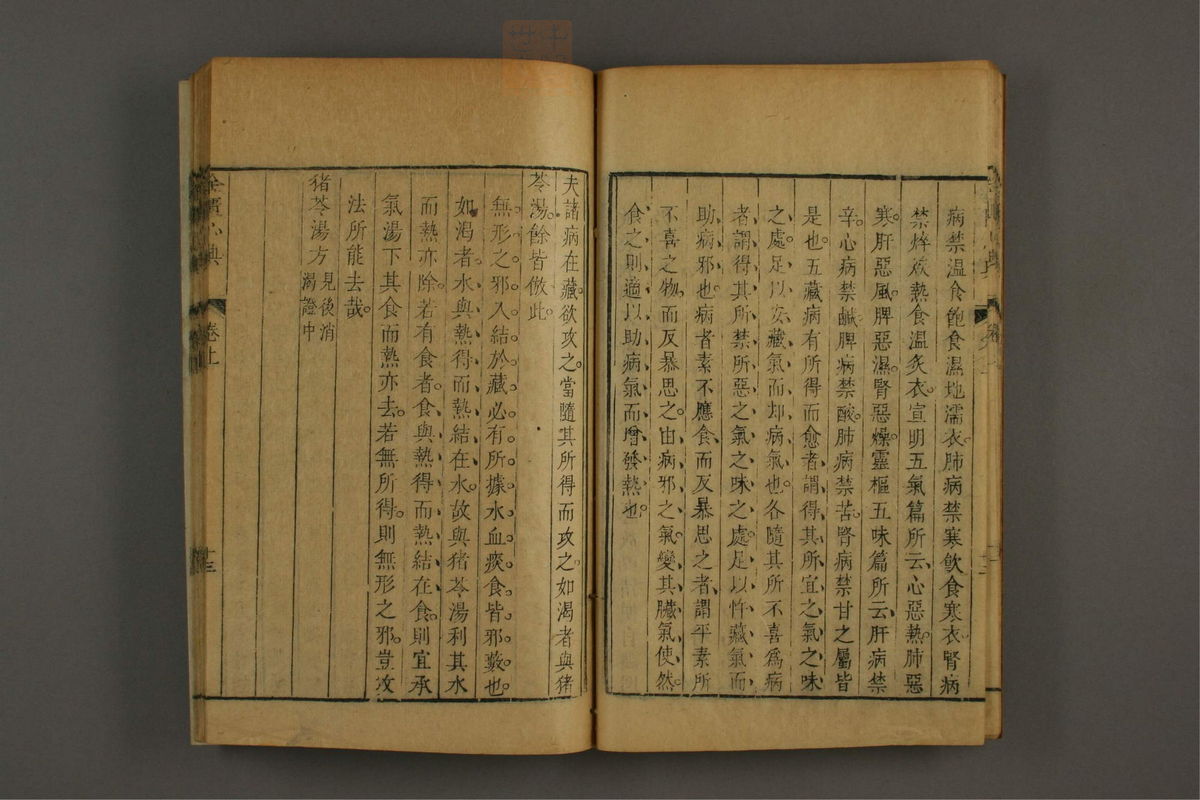 病禁温食飽食濕地濡衣肺病禁寒飲食寒衣腎病
禁焠㶼熱食温炙衣宣明五氣篇所云心惡熱肺惡
寒肝惡風脾惡濕腎惡燥靈樞五味篇所云肝病禁
辛心病禁鹹脾病禁酸肺病禁苦腎病禁甘之屬皆
是也五藏病有所得而愈者謂得其所宜之氣之味
之處足以安藏氣而却病氣也各隨其所不喜爲病
者謂得其所禁所惡之氣之味之處足以忤藏氣而
助病邪也病者素不應食而反暴思之者謂平素所
不喜之物而反暴思之由病邪之氣變其臟氣使然
食之則適以助病氣而增發熱也
夫諸病在藏欲攻之當隨其所得而攻之如渴者與猪
苓湯餘皆倣此
無形之邪入結於藏必有所據水血痰食皆邪藪也
如渴者水與熱得而熱結在水故與猪苓湯利其水
而熱亦除若有食者食與熱得而熱結在食則宜承
氣湯下其食而熱亦去若無所得則無形之邪豈攻
法所能去哉
猪苓湯方 見後消
渴證中
卷上
十三